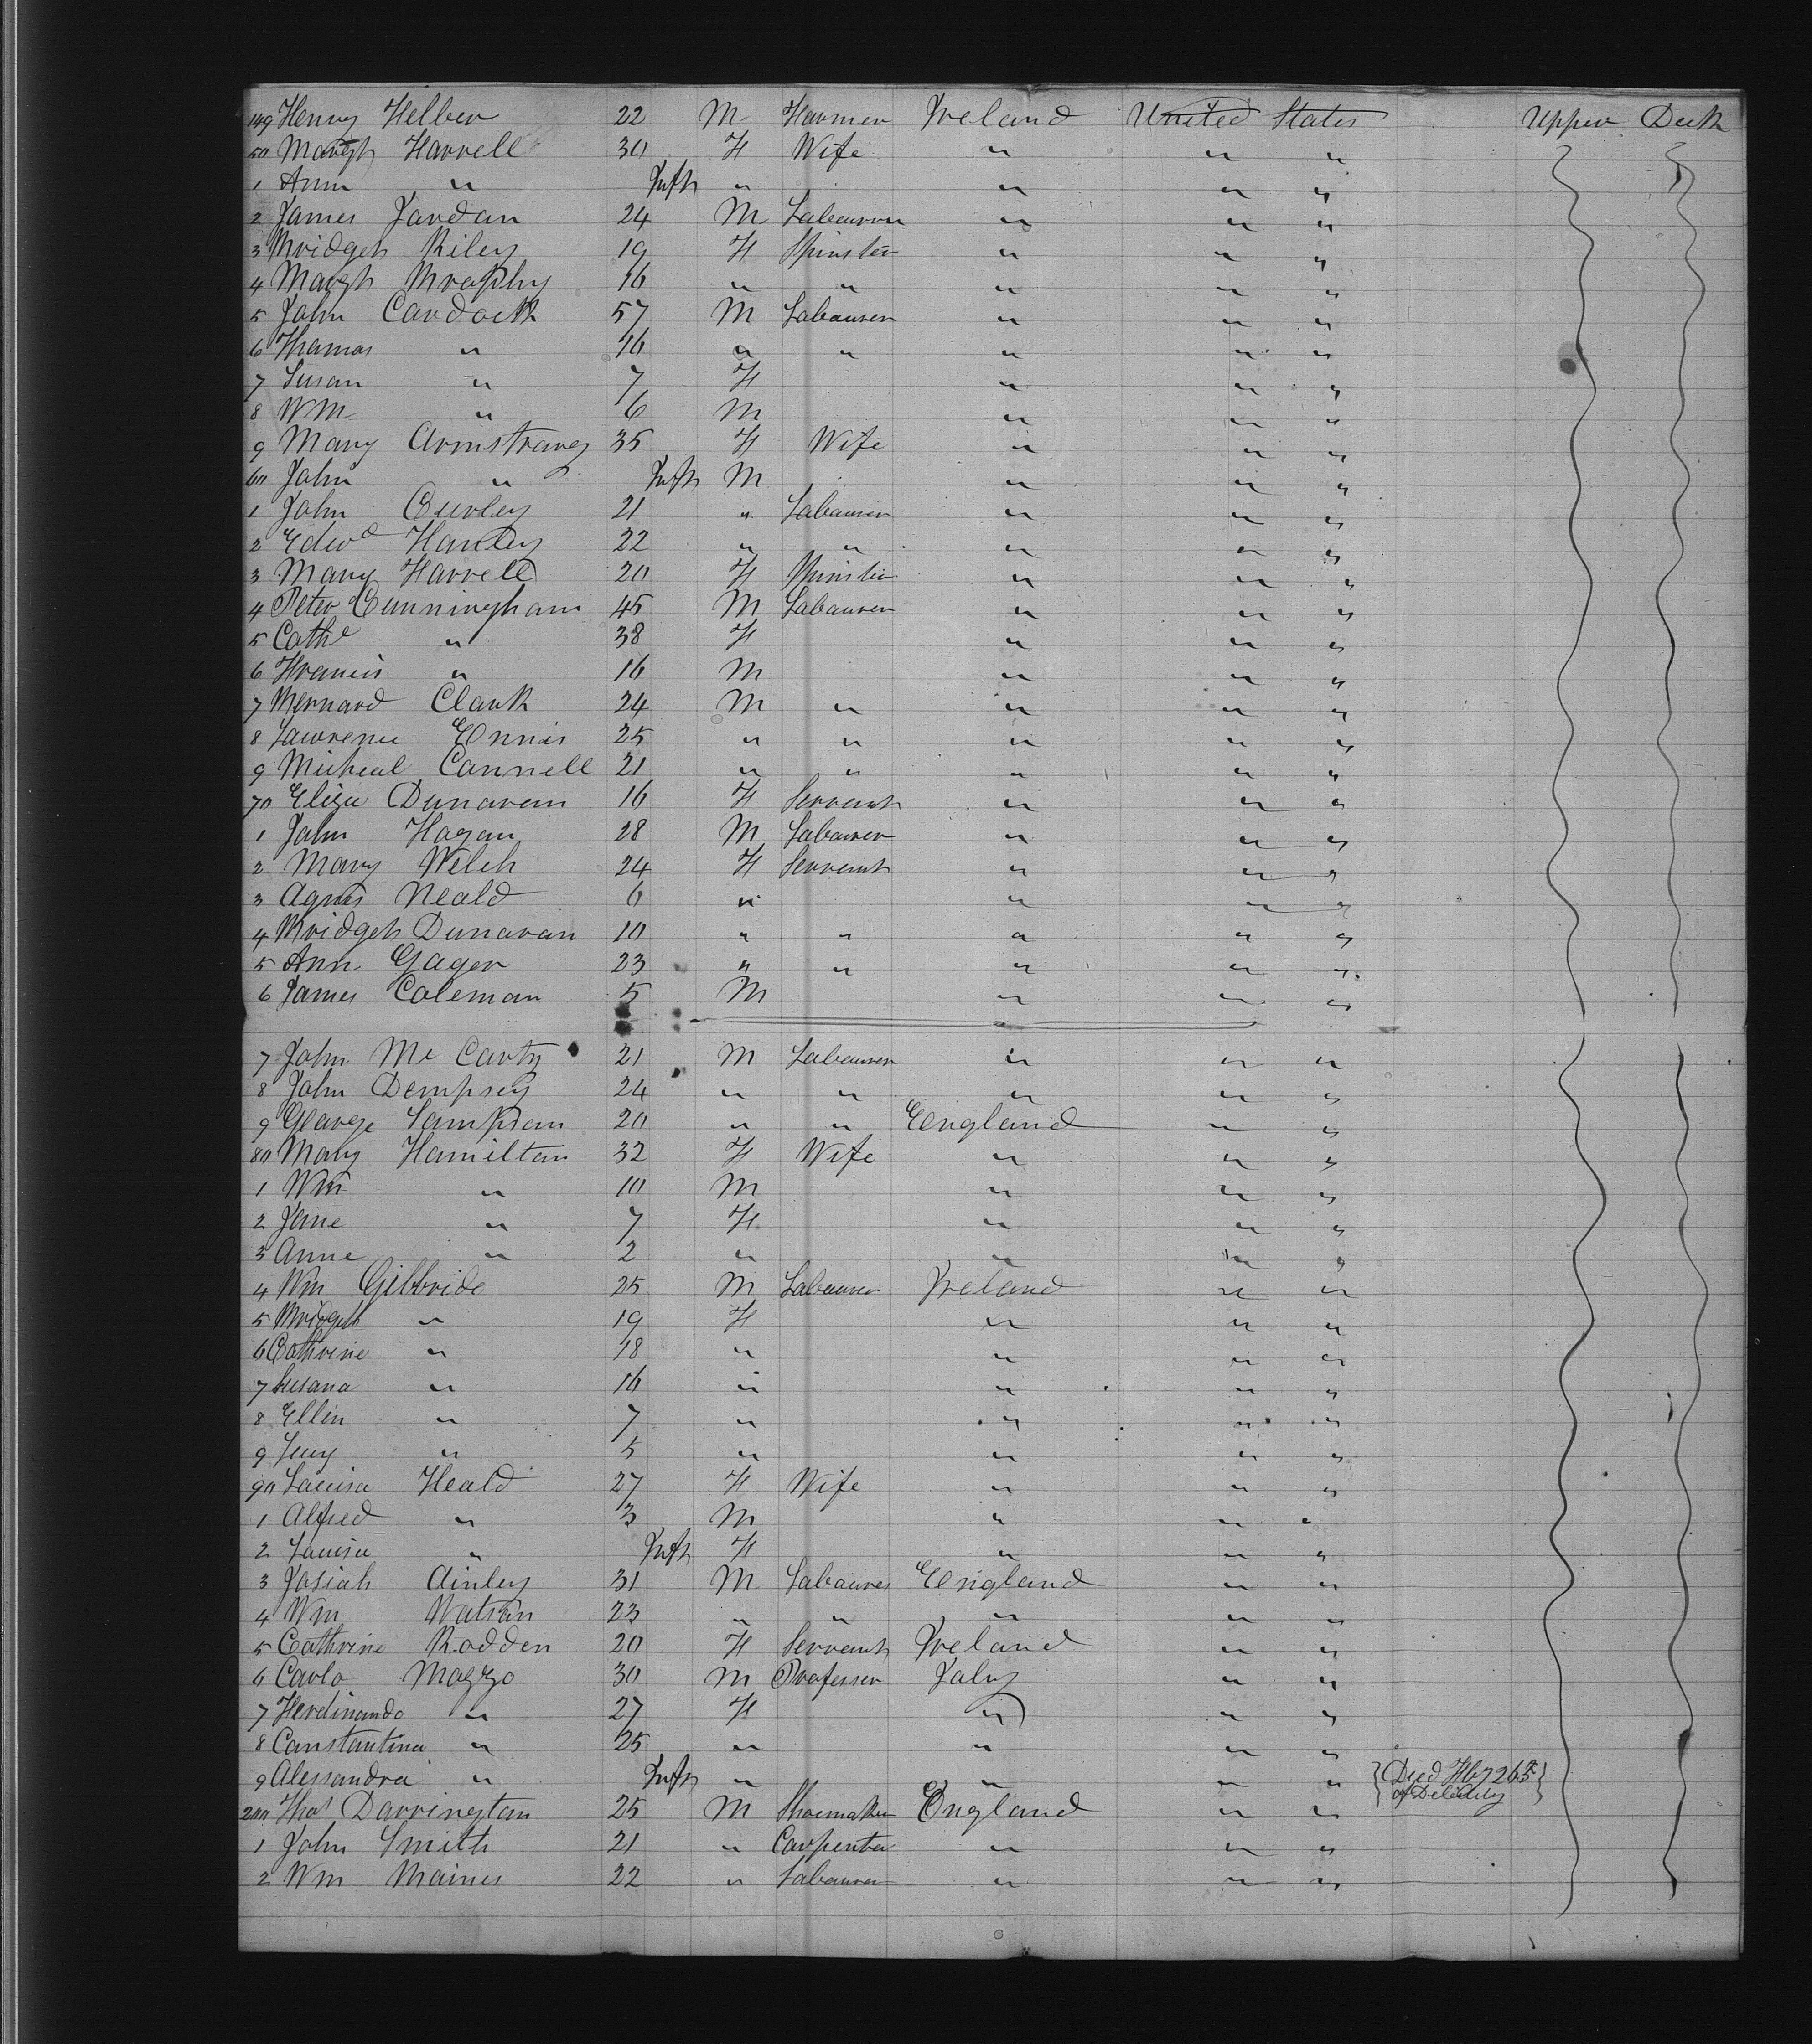 149 Henry Helber 22 M Farmer Ireland United States Upper Deck
50 Margt Farrell 30 F Wife " " "
1 Ann " Inft " " " "
2 James Jordan 24 M Labourer " " "
3 Bridget Riley 19 F Spinster " " "
4 Margt Brophy 16 " " " " "
5 John Cardock 57 M Labourer " " "
6 Thomas " 16 " " " " "
7 Susan " 7 F " " "
8 Wm " 6 M " " "
9 Mary Armstrong 35 F Wife " " "
60 John " Inft M " " "
1 John Curley 21 " Labourer " " "
2 Edwd Hanley 22 " " " " "
3 Mary Farrell 20 F Spinster " " "
4 Peter Cunningham 45 M Labourer " " "
5 Cathe " 38 F " " "
6 Francis " 16 M " " "
7 Bernard Clark 24 M " " " "
8 Lawrence Ennis 25 " " " " "
9 Micheal Connell 21 " " " " "
70 Eliza Dunavan 16 F Servant " " "
1 John Hagan 28 M Labourer " " "
2 Mary Welch 24 F Servant " " "
3 Agnes Neald 6 " " " "
4 Bridget Dunavan 10 " " " " "
5 Ann Gager 23 " " " " "
6 James Coleman 5 M " " "
7 John Mc Carty 21 M Labourer " " "
8 John Dempsey 24 " " " " "
9 George Sampson 20 " " England " "
80 Mary Hamilton 32 F Wife " " "
1 Wm " 10 M " " "
2 Jane " 7 F " " "
3 Anne " 2 " " " "
4 Wm Gilbride 25 M Labourer Ireland " "
5 Bridget " 19 F " " "
6 Cathrine " 18 " " " "
7 Susana " 16 " " " "
8 Ellen " 7 " " " "
9 Lucy " 5 " " " "
90 Louisa Heald 27 F Wife " " "
1 Alfred " 3 M " " "
2 Louisa " Inft F " " "
3 Josiah Ainley 31 M Labourer England " "
4 Wm Watson 23 " " " " "
5 Cathrine Rodden 20 F Servant Ireland " "
6 Carlo Mozzo 30 M Professer Italy " "
7 Ferdinando " 27 F " " "
8 Constantina " 25 " " " "
9 Alessandra " Inft " " " " Died Feby 26th
of Debility
200 Thos Darrington 25 M Shoemaker England " "
1 John Smith 21 " Carpenter " " "
2 Wm Maines 22 " Labourer " " "